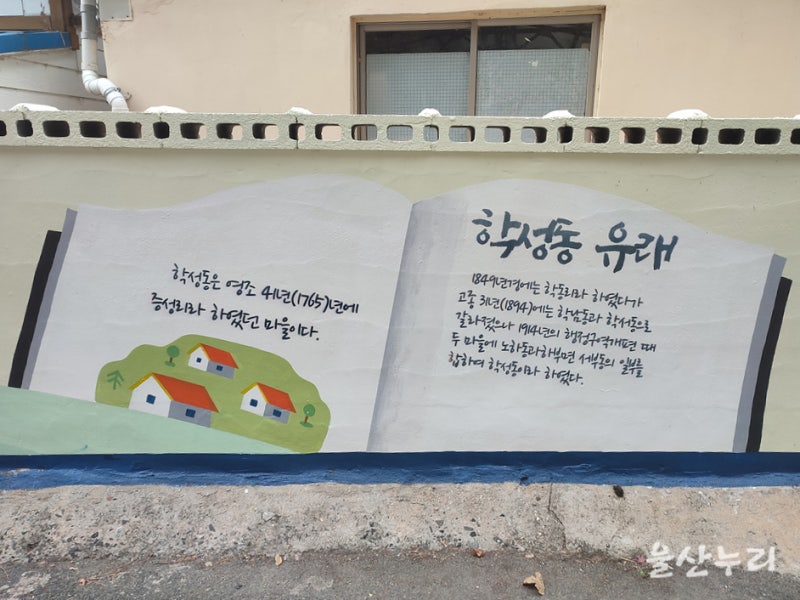 학성동은 영조 41년(1765)년에
증성리라 하였던 마을이다.
학성동 유래
1849년경에는 학동리라 하였다가
고종 31년(1894)에는 학남동과 학서동으로
갈라졌으나 1914년의 행정구역개편 때
두 마을에 노하동과 하부면 서부동의 일부를
합하여 학성동이라 하였다.
울산누리